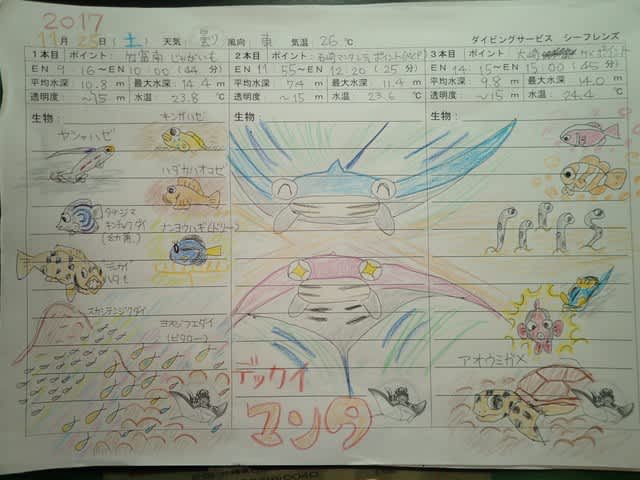 2017
11月25日（土）天気：曇り 風向：東 気温：26℃ ダイビングサービス シーフレンズ
1本目 ポイント：竹富南 じゃがいも
EN 9：16～EN 10：00（44分）
平均水深 10.8 m 最大水深 14.4 m
透明度 ～15 m 水温 23.8 ℃
生物：
ヤシャハゼ
キンギハゼ
ハダカハオコゼ
タテジマ
キンチャクダイ
ナンヨウハギ（ドリー）
ミカイ
ハタも
スカシテンジクダイ
ヨスジフエダイ
2本目 ポイント：石崎マンタ
EN 11：55～EN 12：20（25分）
平均水深 7.4 m 最大水深 11.4 m
透明度 ～15 m 水温 23.6 ℃
生物：
デッカイ
マンタ
3本目 ポイント：大崎 ポイント
EN 14：15～EN 15：00（45分）
平均水深 9.8 m 最大水深 14.0 m
透明度 ～15 m 水温 24.4 ℃
生物：
アオウミガメ